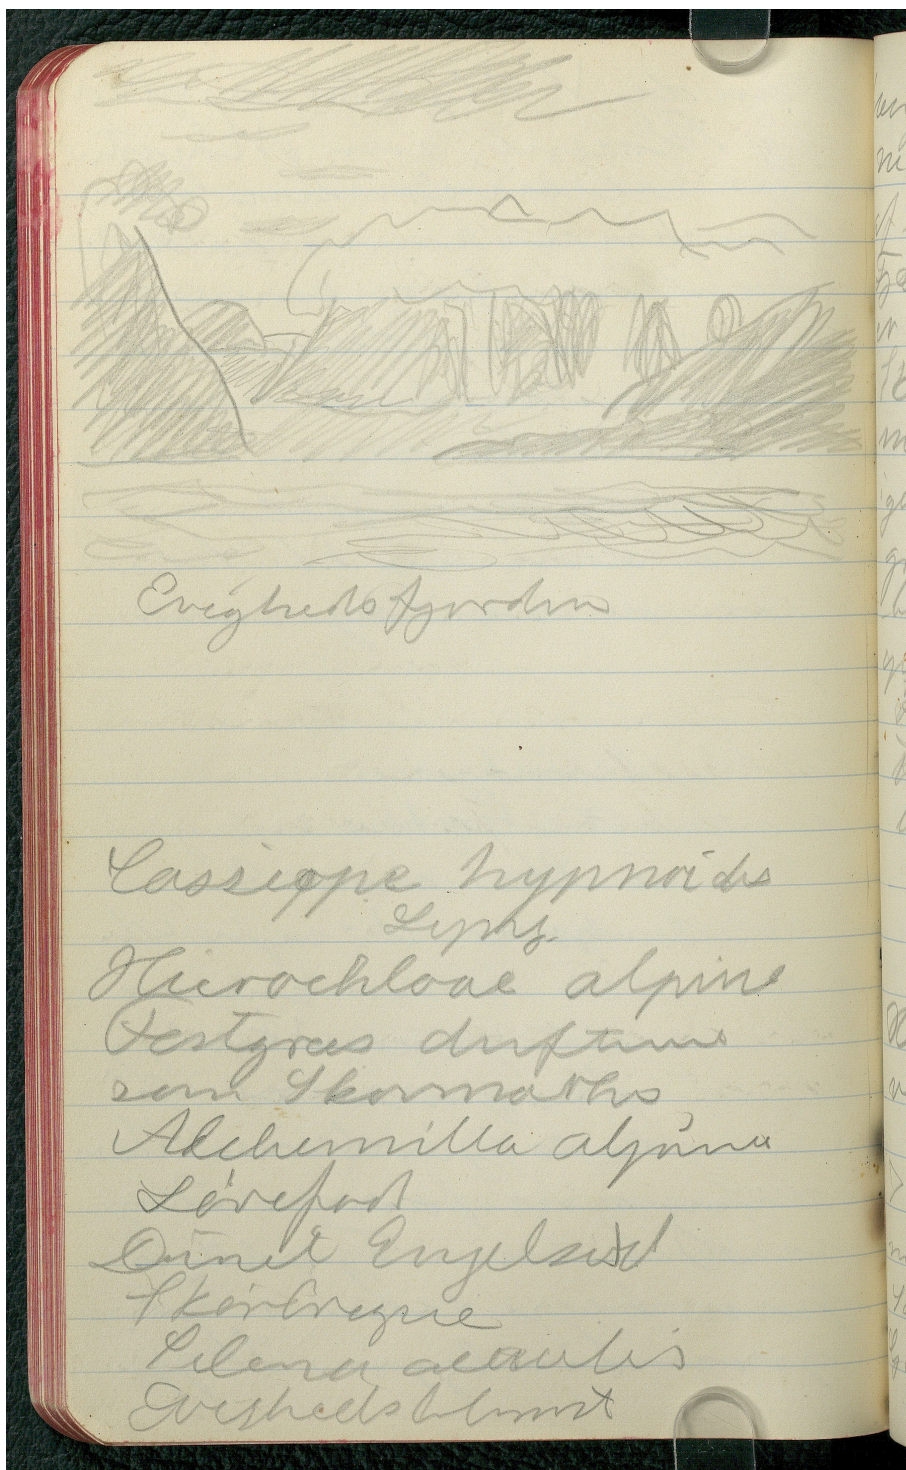 Evighedsfjorden
Cassiope hypnoides
Lyng
Hierochloae alpine
Festgræs duftene
som Skovmærke
Alchemilla alpina
Løvefod
Dunet Engelsød
Skørbregne
Silena acaulis
Evighedsblomst